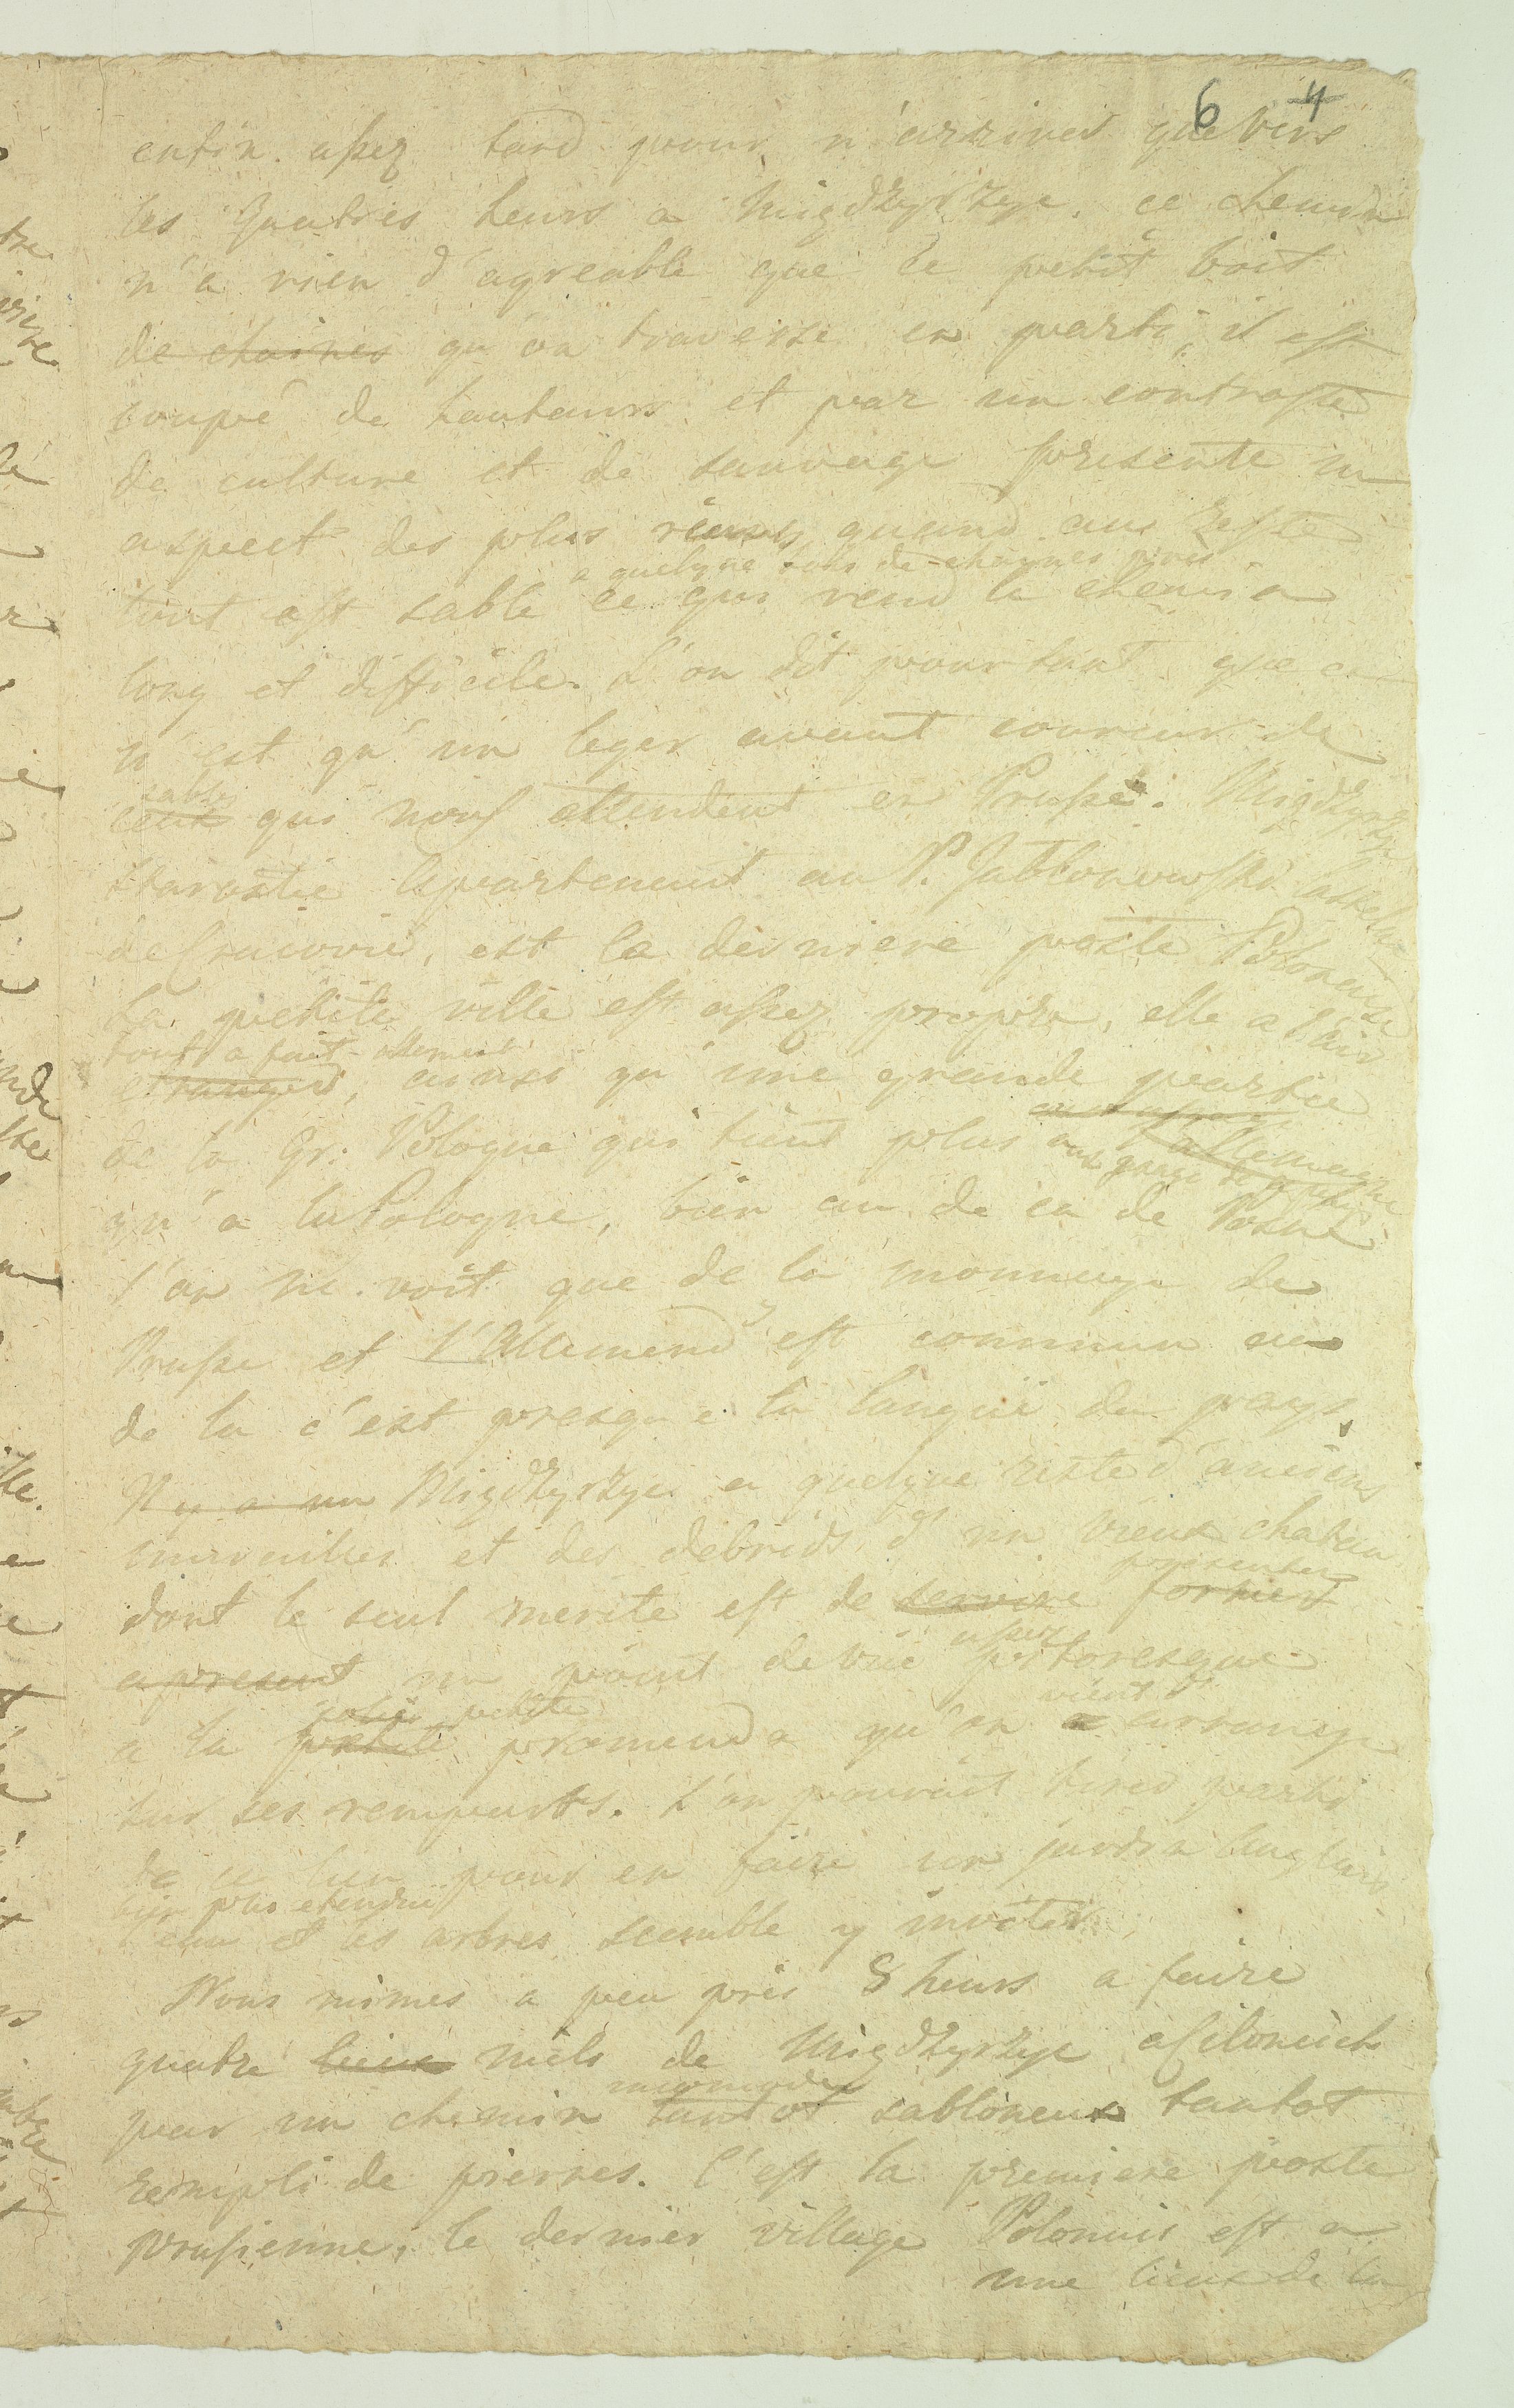 6 4
enfin aßez tard pour n'arriver que vers
les quatres heurs a Migdzyrzye, ce chemin
n'a rien d'agreable que le petit boit
de chaines qu'on traverse en parti, il est
coupé de hauteurs et par un contraste
de culture et de sauvage presente un
aspect des plus quand au reste
a quelque de chaines près
tout est sable ce qui rend le chemin
long et difficile. L'on dit pourtant que ce
n'est qu'un leger avant coureur de
sables
ceux qui nous attendent en Pruße. Migdzyrzye
starostie apartenant au P. Jabłonowski Castelan
de Cracovie, est la derniere poste Polonaise
La petite ville est aßez propre, elle a l'air
tout a fait allemend
etranger, ainsi qu'une grande partie
de la Gr: Pologne qui tient plus a l'allemagne
qu'a la Pologne, bien au de ca de Posne
l'on ne voit que de la monnaye de
Pruße et l'Allemend est commun au
de la c'est presque la langue du pays.
Il y a un Migdzyrzye a quelque reste d'anciens
murailles et des debrids d'un vieux chateau
presenter
dont le seul merite est de servire former
aßez
apresent un point de vue pitoresque
jolie petite vient d'
a la petite promenade qu'on a arrange
sur ses remparts. L'on pouroit tirer parti
de ce lieu pour en faire un jardin Anglais
bien plus etendue
l'eau et les arbres semble y inviter.
Nous mimes a peu près 8 heurs a faire
quatre lieux miels de Migdzyrzye a Cilencich
par un chemin tantot sabloneux tantot
rempli de pierres. C'est la premiere poste
prusienne, le dernier village Polonais est a
une lieux de la